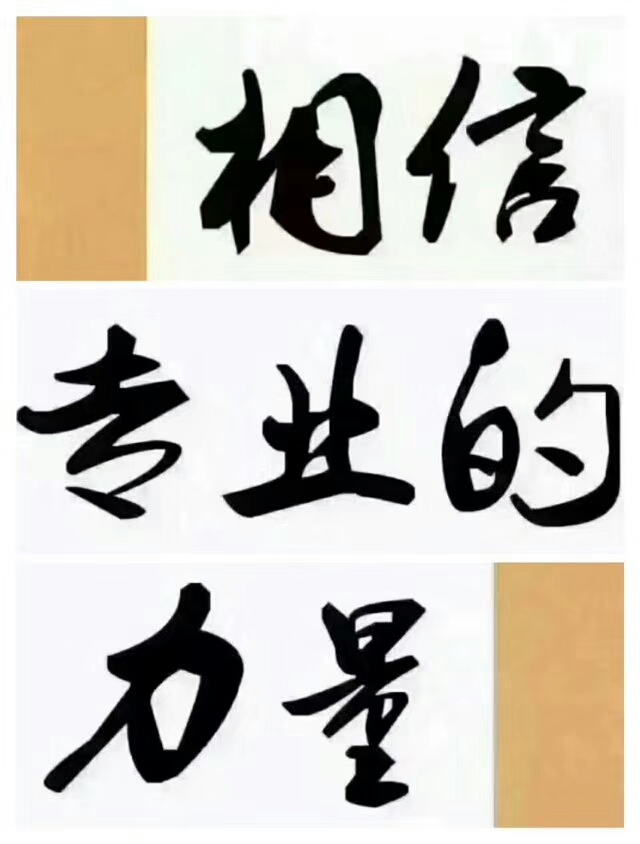 相信
专业的
力量